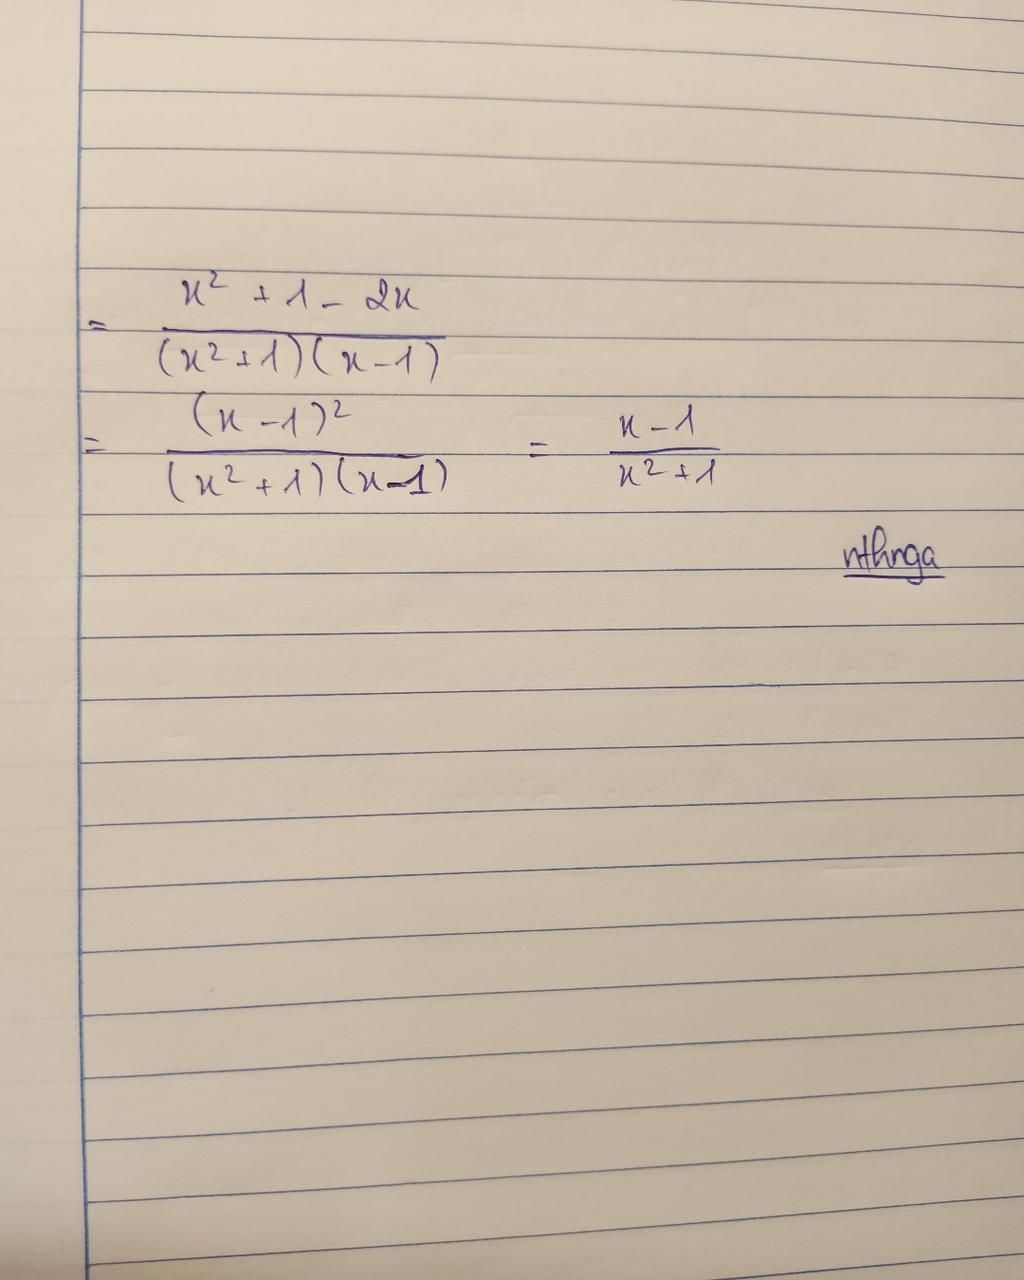 = (x² + 1 - 2x) / ((x² + 1)(x - 1))
= (x - 1)² / ((x² + 1)(x - 1)) = (x - 1) / (x² + 1)
nthnga